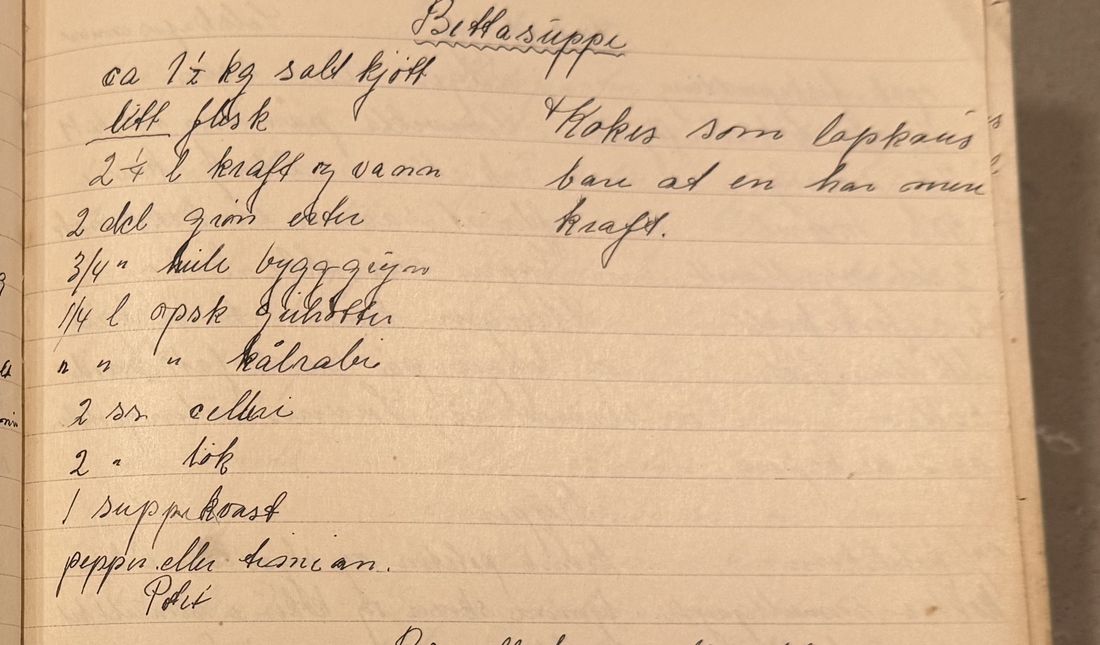 Bettasuppe
ca 1½ kg salt kjött
litt flesk
2¼ l kraft og vann
2 dcl grön erter
3/4 " hele bygg-gryn
1/4 l opsk gulrötter
" " " kålrabi
2 ss. celleri
2 " lök
1 suppekvast
pepper eller timian.
Potet
Kokes som lapkaus
bare at en har mere
kraft.